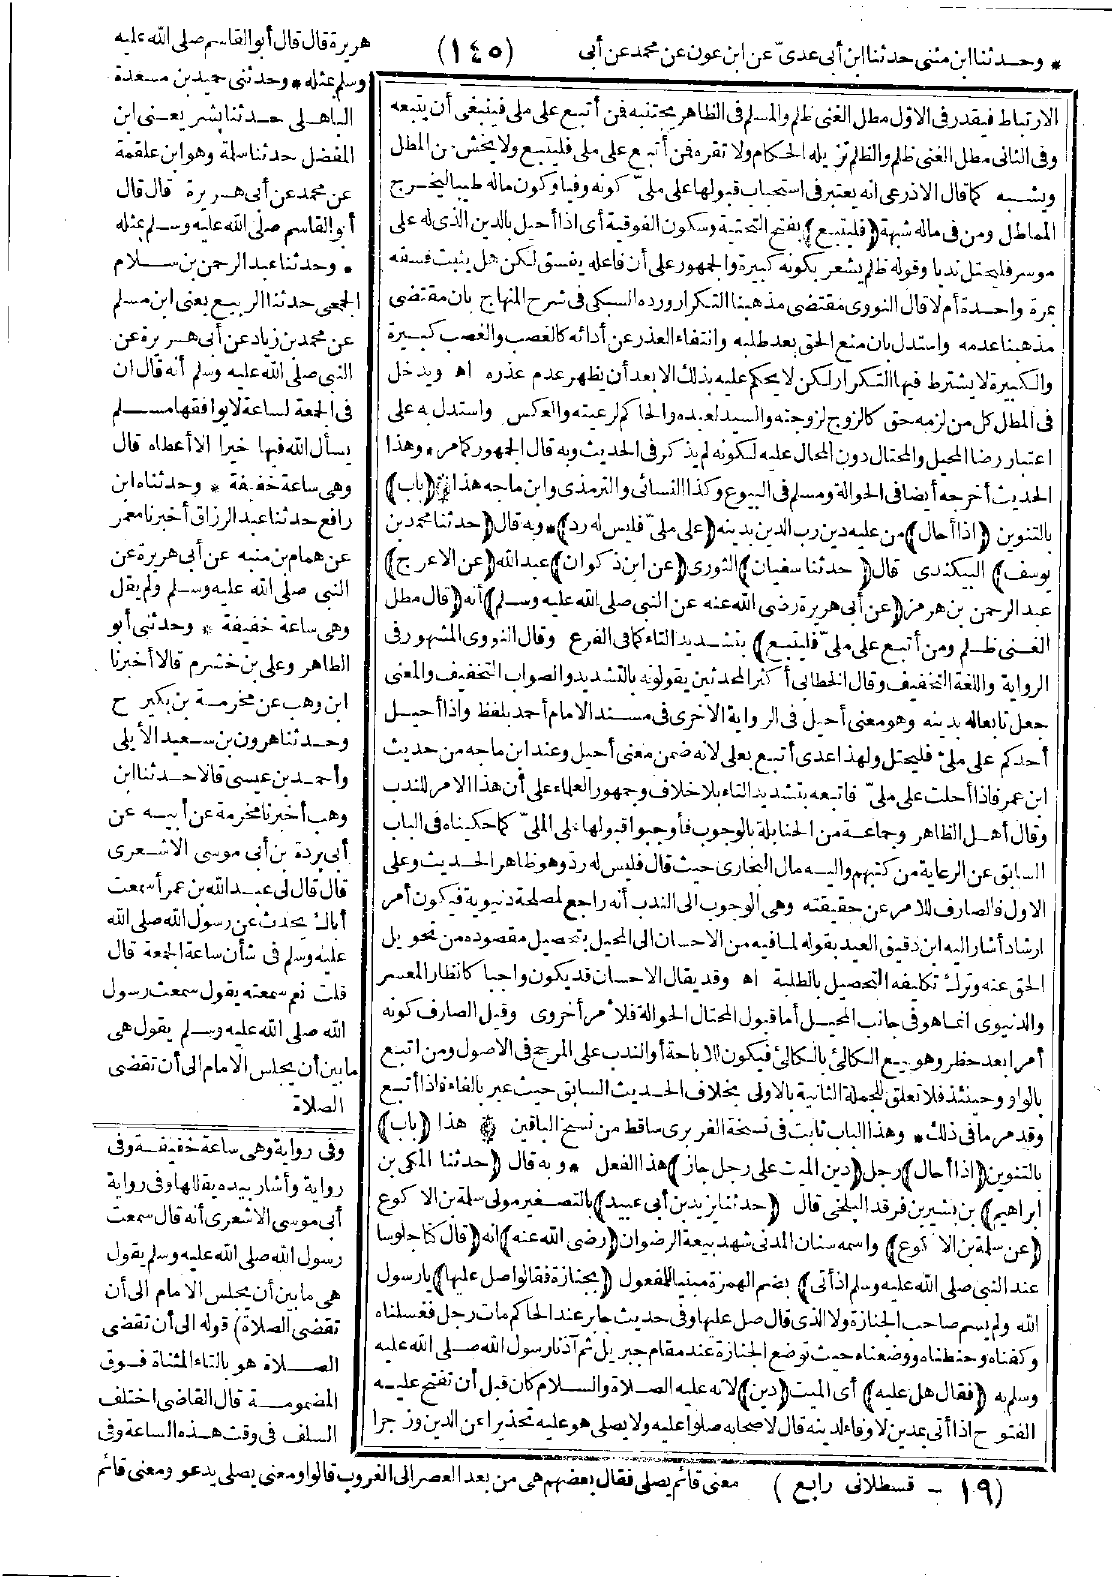 * وحدثنا ابن مثنى حدثنا ابن أبى عدىّ عن ابن عون عن محمد عن أبى
(١٤٥)
هريرة قال قال أبو القاسم صلى الله عليه
وسلم بمثله * وحدثنى حميد بن مسعدة
الباهلى حدثنا بشر يعنى ابن
المفضل حدثنا سلمة وهو ابن علقمة
عن محمد عن أبى هريرة قال قال
أبو القاسم صلى الله عليه وسلم بمثله
* وحدثنا عبد الرحمن بن سلام
الجمعى حدثنا الربيع يعنى ابن مسلم
عن محمد بن زياد عن أبى هريرة عن
النبى صلى الله عليه وسلم أنه قال ان
فى الجمعة لساعة لا يوافقها مسلم
يسأل الله فيها خيرا الا أعطاه قال
وهى ساعة خفيفة * وحدثناه ابن
رافع حدثنا عبد الرزاق أخبرنا معمر
عن همام بن منبه عن أبى هريرة عن
النبى صلى الله عليه وسلم ولم يقل
وهى ساعة خفيفة * وحدثنى أبو
الطاهر وعلى بن خشرم قالا أخبرنا
ابن وهب عن مخرمة بن بكير ح
وحدثنا هرون بن سعيد الأيلى
وأحمد بن عيسى قالا حدثنا ابن
وهب أخبرنا مخرمة عن أبيه عن
أبى بردة بن أبى موسى الاشعرى
قال قال لى عبد الله بن عمر أسمعت
أباك يحدث عن رسول الله صلى الله
عليه وسلم فى شأن ساعة الجمعة قال
قلت نعم سمعته يقول سمعت رسول
الله صلى الله عليه وسلم يقول هى
ما بين أن يجلس الامام الى أن تقضى
الصلاة
وفى رواية وهى ساعة خفيفة وفى
رواية وأشار بيده يقللها وفى رواية
أبى موسى الاشعرى أنه قال سمعت
رسول الله صلى الله عليه وسلم يقول
هى ما بين أن يجلس الامام الى أن
تقضى الصلاة) قوله الى أن تقضى
الصلاة هو بالتاء المثناة فوق
المضمومة قال القاضى اختلف
السلف فى وقت هذه الساعة وفى
معنى قائم يصلى فقال بعضهم هى من بعد العصر الى الغروب قالوا ومعنى يصلى يدعو ومعنى قائم
الارتباط فيقدر فى الاوّل مطل الغنى ظلم والمسلم فى الظاهر يجتنبه فمن أتبع على ملى فينبغى أن يتبعه
وفى الثانى مطل الغنى ظلم والظلم تزيله الحكام ولا تقره فمن أتبع على ملى فليتبع ولا يخش من المطل
ويشبه كما قال الاذرعى انه يعتبر فى استحباب قبولها على ملىّ كونه وفيا وكون ماله طيبا ليخرج
المماطل ومن فى ماله شبهة (فليتبع) بفتح التحتية وسكون الفوقية أى اذا أحيل بالدين الذى له على
موسر فليحتل ندبا وقوله ظلم يشعر بكونه كبيرة والجمهور على أن فاعله يفسق لكن هل يثبت فسقه
بمرة واحدة أم لا قال النووى مقتضى مذهبنا التكرار ورده السبكى فى شرح المنهاج بان مقتضى
مذهبنا عدمه واستدل بان منع الحق بعد طلبه وانتفاء العذر عن أدائه كالغصب والغصب كبيرة
والكبيرة لا يشترط فيها التكرار لكن لا يحكم عليه بذلك الا بعد أن يظهر عدم عذره اه ويدخل
فى المطل كل من لزمه حق كالزوج لزوجته والسيد لعبده والحاكم لرعيته والعكس واستدل به على
اعتبار رضا المحيل والمحتال دون المحال عليه لكونه لم يذكر فى الحديث وبه قال الجمهور كما مر * وهذا
الحديث أخرجه أيضا فى الحوالة ومسلم فى البيوع وكذا النسائى والترمذى وابن ماجه هذا * (باب)
بالتنوين (اذا أحال) من عليه دين رب الدين بدينه (على ملىّ فليس له رد) * وبه قال (حدثنا محمد بن
يوسف) البيكندى قال (حدثنا سفيان) الثورى (عن ابن ذكوان) عبد الله (عن الاعرج)
عبد الرحمن بن هرمز (عن أبى هريرة رضى الله عنه عن النبى صلى الله عليه وسلم) أنه (قال مطل
الغنى ظلم ومن أتبع على ملىّ فليتبع) بتشديد التاء كما فى الفرع وقال النووى المشهور فى
الرواية واللغة التخفيف وقال الخطابى أكثر المحدثين يقولونه بالتشديد والصواب التخفيف والمعنى
جعل تابعا له بدينه وهو معنى أحيل فى الرواية الاخرى فى مسند الامام أحمد بلفظ واذا أحيل
أحدكم على ملئ فليحتل ولهذا عدى أتبع بعلى لانه ضمن معنى أحيل وعند ابن ماجه من حديث
ابن عمر فاذا أحلت على ملىّ فاتبعه بتشديد التاء بلا خلاف وجمهور العلماء على أن هذا الامر للندب
وقال أهل الظاهر وجماعة من الحنابلة بالوجوب فأوجبوا قبولها على الملىّ كما حكيناه فى الباب
السابق عن الرعاية من كتبهم واليه مال البخارى حيث قال فليس له رد وهو ظاهر الحديث وعلى
الاول فالصارف للامر عن حقيقته وهى الوجوب الى الندب أنه راجع لمصلحة دنيوية فيكون أمر
ارشاد أشار اليه ابن دقيق العيد بقوله لما فيه من الاحسان الى المحيل بتحصيل مقصوده من تحويل
الحق عنه وترك تكليفه التحصيل بالطلبة اه وقد يقال الاحسان قد يكون واجبا كانظار المعسر
والدنيوى انما هو فى جانب المحيل أما قبول المحتال الحوالة فلأمر أخروى وقيل الصارف كونه
أمرا بعد حظر وهو بيع الكالئ بالكالئ فيكون للاباحة أو الندب على المرجح فى الاصول ومن اتبع
بالواو وحينئذ فلا تعلق للجملة الثانية بالاولى بخلاف الحديث السابق حيث عبر بالفاء فاذا أتبع
وقد مر ما فى ذلك * وهذا الباب ثابت فى نسخة الفربرى ساقط من نسخ الباقين * هذا (باب)
بالتنوين (اذا أحال) رجل (دين الميت على رجل جاز) هذا الفعل * وبه قال (حدثنا المكى بن
ابراهيم) بن بشير بن فرقد البلخى قال (حدثنا يزيد بن أبى عبيد) بالتصغير مولى سلمة بن الاكوع
(عن سلمة بن الاكوع) واسمه سنان المدنى شهد بيعة الرضوان (رضى الله عنه) انه (قال كنا جلوسا
عند النبى صلى الله عليه وسلم اذ أتى) بضم الهمزة مبنيا للمفعول (بجنازة فقالوا صل عليها) يا رسول
الله ولم يسم صاحب الجنازة ولا الذى قال صل عليها وفى حديث جابر عند الحاكم مات رجل فغسلناه
وكفناه وحنطناه ووضعناه حيث توضع الجنازة عند مقام جبريل ثم آذنا رسول الله صلى الله عليه
وسلم به (فقال هل عليه) أى الميت (دين) لانه عليه الصلاة والسلام كان قبل أن تفتح عليه
الفتوح اذا أتى بمدين لا وفاء لدينه قال لاصحابه صلوا عليه ولا يصلى هو عليه تحذيرا عن الدين وزجرا
(١٩ - قسطلانى رابع)